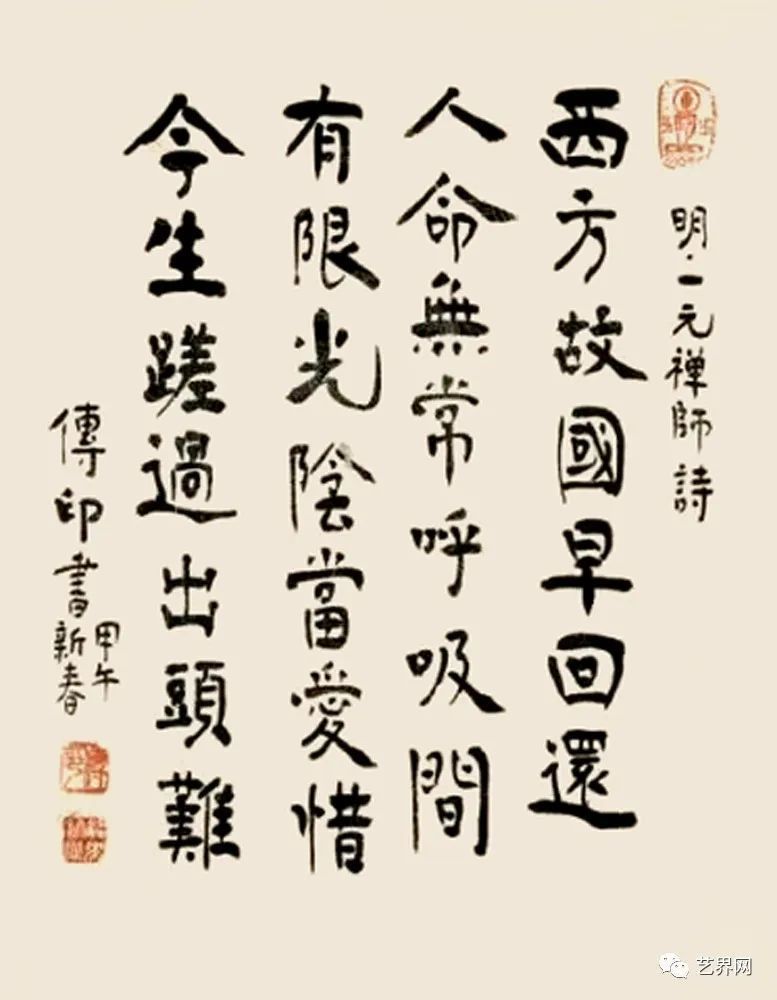 明·一元禅師詩
西方故國早回還
人命無常呼吸間
有限光陰當愛惜
今生蹉過出頭難
傳印書
甲午
新春
艺界网